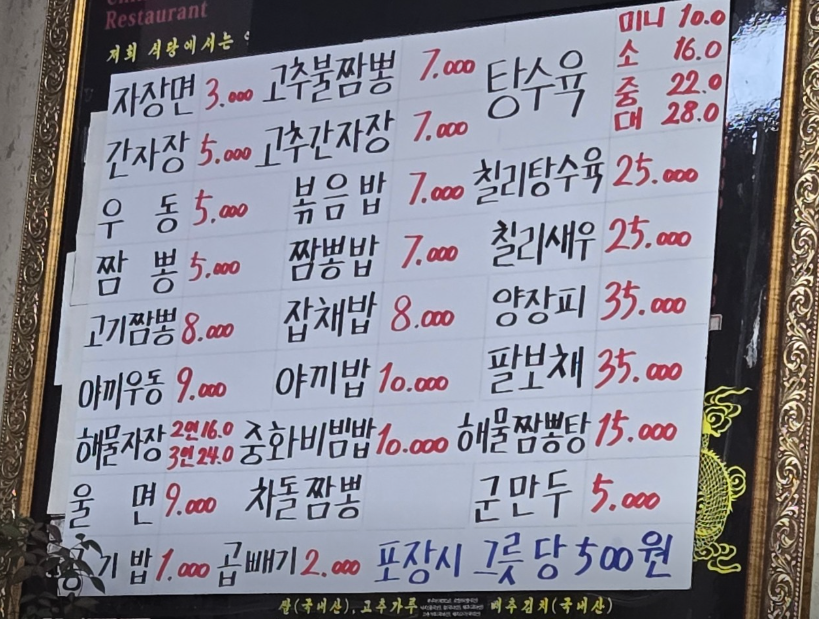 Restaurant
저희 식당에서는
자장면 3.000 고추불짬뽕 7.000 탕수육 미니 10.0
소 16.0
중 22.0
대 28.0
간자장 5.000 고추간자장 7.000
우동 5.000 볶음밥 7.000 칠리탕수육 25.000
짬뽕 5.000 짬뽕밥 7.000 칠리새우 25.000
고기짬뽕 8.000 잡채밥 8.000 양장피 35.000
야끼우동 9.000 야끼밥 10.000 팔보채 35.000
해물자장 2인 16.0 중화비빔밥 10.000 해물짬뽕탕 15.000
3인 24.0
울면 9.000 차돌짬뽕 군만두 5.000
공기밥 1.000 곱빼기 2.000 포장시 그릇당 500원
쌀(국내산), 고추가루 배추김치(국내산)